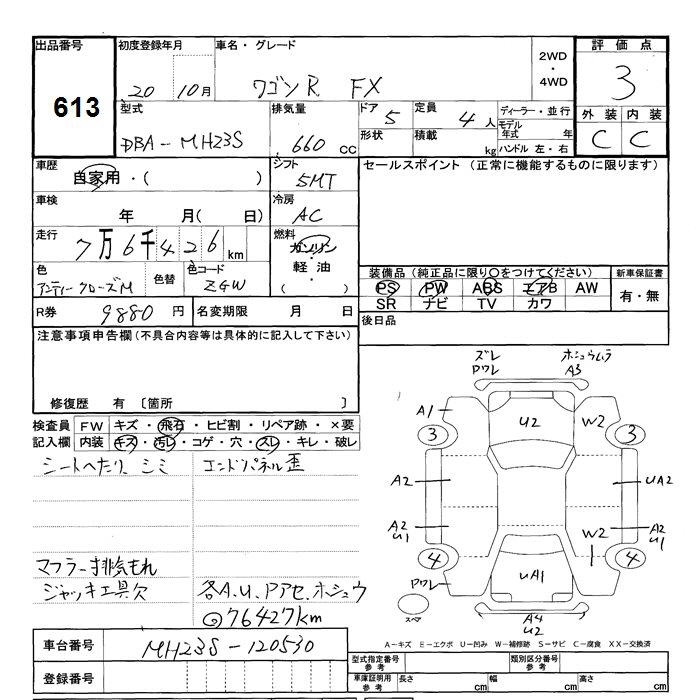 出品番号 初度登録年月 車名・グレード 2WD・4WD 評価点
613 20 10月 ワゴンR FX 3
型式 排気量 ドア 5 定員 4人 ディーラー・並行 外装 内装
DBA-MH23S 660cc 形状 積載 kg モデル年式 年 C C
ハンドル 左・右
車歴 シフト セールスポイント (正常に機能するものに限ります)
自家用・( ) 5MT
車検 冷房
年 月( 日) AC
走行 燃料
7万6千426km ガソリン
軽油
( )
色 色替 色コード 装備品(純正品に限り○をつけてください) 新車保証書
アンティークローズM ZGW PS PW ABS エアB AW 有・無
SR ナビ TV カワ
R券 9880円 名変期限 月 日 後日品
注意事項申告欄(不具合内容等は具体的に記入して下さい)
修復歴 有 〔箇所 〕
検査員 FW キズ・飛石・ヒビ割・リペア跡・×要
記入欄 内装 キズ・汚レ・コゲ・穴・スレ・キレ・破レ
シートヘたり シミ エンドパネル歪
マフラー排気もれ
ジャッキ工具欠 各A.U.Pアセ.ホシュウ
76427km
ズレ ホシュウムラ
PワレA3
A1 U2 W2
3 3
A2 UA2
A2 U1 W2 A2 U1
4 4
Pワレ UA1
スペア A4
U2
A～キズ E～エクボ U～凹み W～補修跡 S～サビ C～腐食 XX～交換済
車台番号 MH23S-120530 型式指定番号 参考 類別区分番号 参考
登録番号 車庫証明用 参考 長さ cm 幅 cm 高さ cm